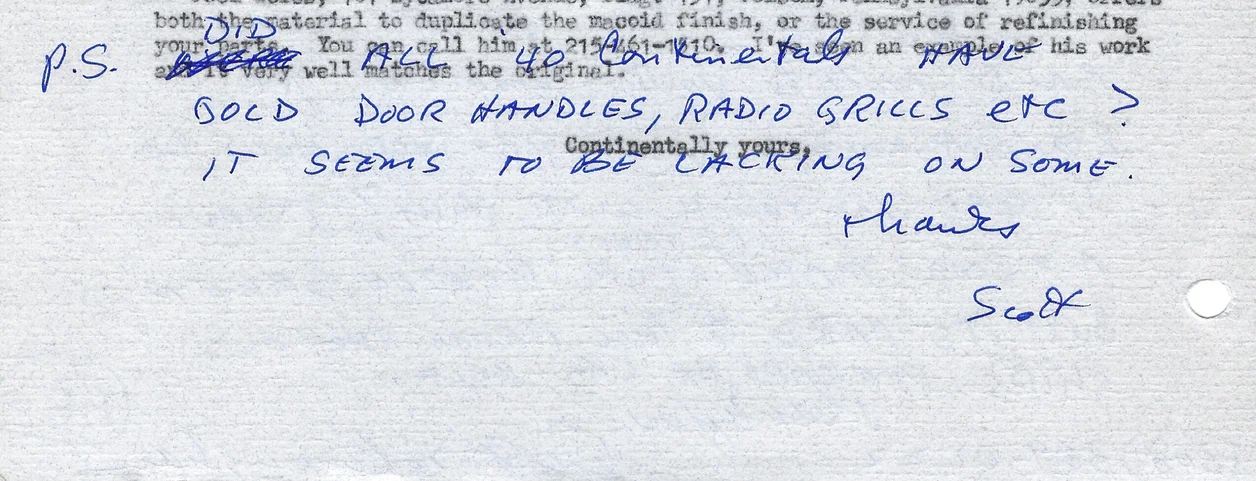 both the material to duplicate the macoid finish, or the service of refinishing
your parts. You can call him at I've seen an example of his work
and it very well matches the original.
P.S. DID ALL '40 Continentals HAVE
GOLD DOOR HANDLES, RADIO GRILLS etc ?
Continentally yours,
IT SEEMS TO BE LACKING ON SOME.
thanks
Scott